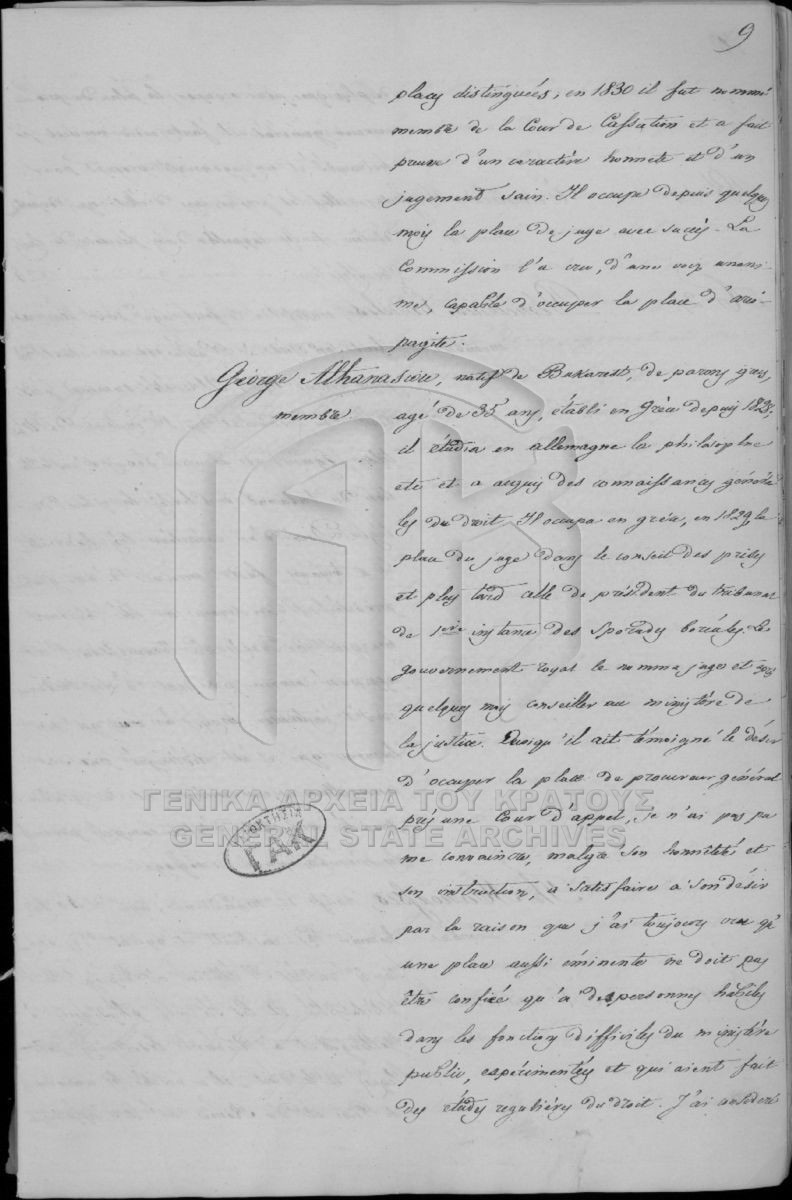 9
places distinguées; en 1830 il fut nommé
membre de la Cour de Cassation et a fait
preuve d'un caractère honnete et d'un
jugement sain. Il occupe depuis quelques
mois la place de juge avec succès. La
Commission l'a cru, d'une voix unani-
me, capable d'occuper la place d'aréo-
pagite.
George Athanasiou, natif de Bukarest, de parens grecs,
membre agé de 35 ans, établi en Grèce depuis 1828,
il étudia en allemagne la philosophie
etc et a acquis des connaissances généra
les du droit. Il occupa en grèce, en 1829, la
place du juge dans le conseil des prises
et plus tard celle de président du tribunal
de 1ere instance des Sporades boréales. Le
gouvernement royal le nomma juge et après
quelques mois conseiller au ministère de
la justice. Quoiqu'il ait témoigné le désir
d'occuper la place de procureur général
près une Cour d'appel, je n'ai pas pu
me convaincre, malgré son honnêteté et
son instruction, à satisfaire à son désir
par la raison que j'ai toujours cru qu'
une place aussi éminente ne doit pas
être confiée qu'à des personnes habiles
dans les fonctions difficiles du ministère
public, expérimentés et qui aient fait
des études regulières du droit. J'ai considéré
ΓΕΝΙΚΑ ΑΡΧΕΙΑ ΤΟΥ ΚΡΑΤΟΥΣ
GENERAL STATE ARCHIVES
ΙΔΙΟΚΤΗΣΙΑ
ΓΑΚ